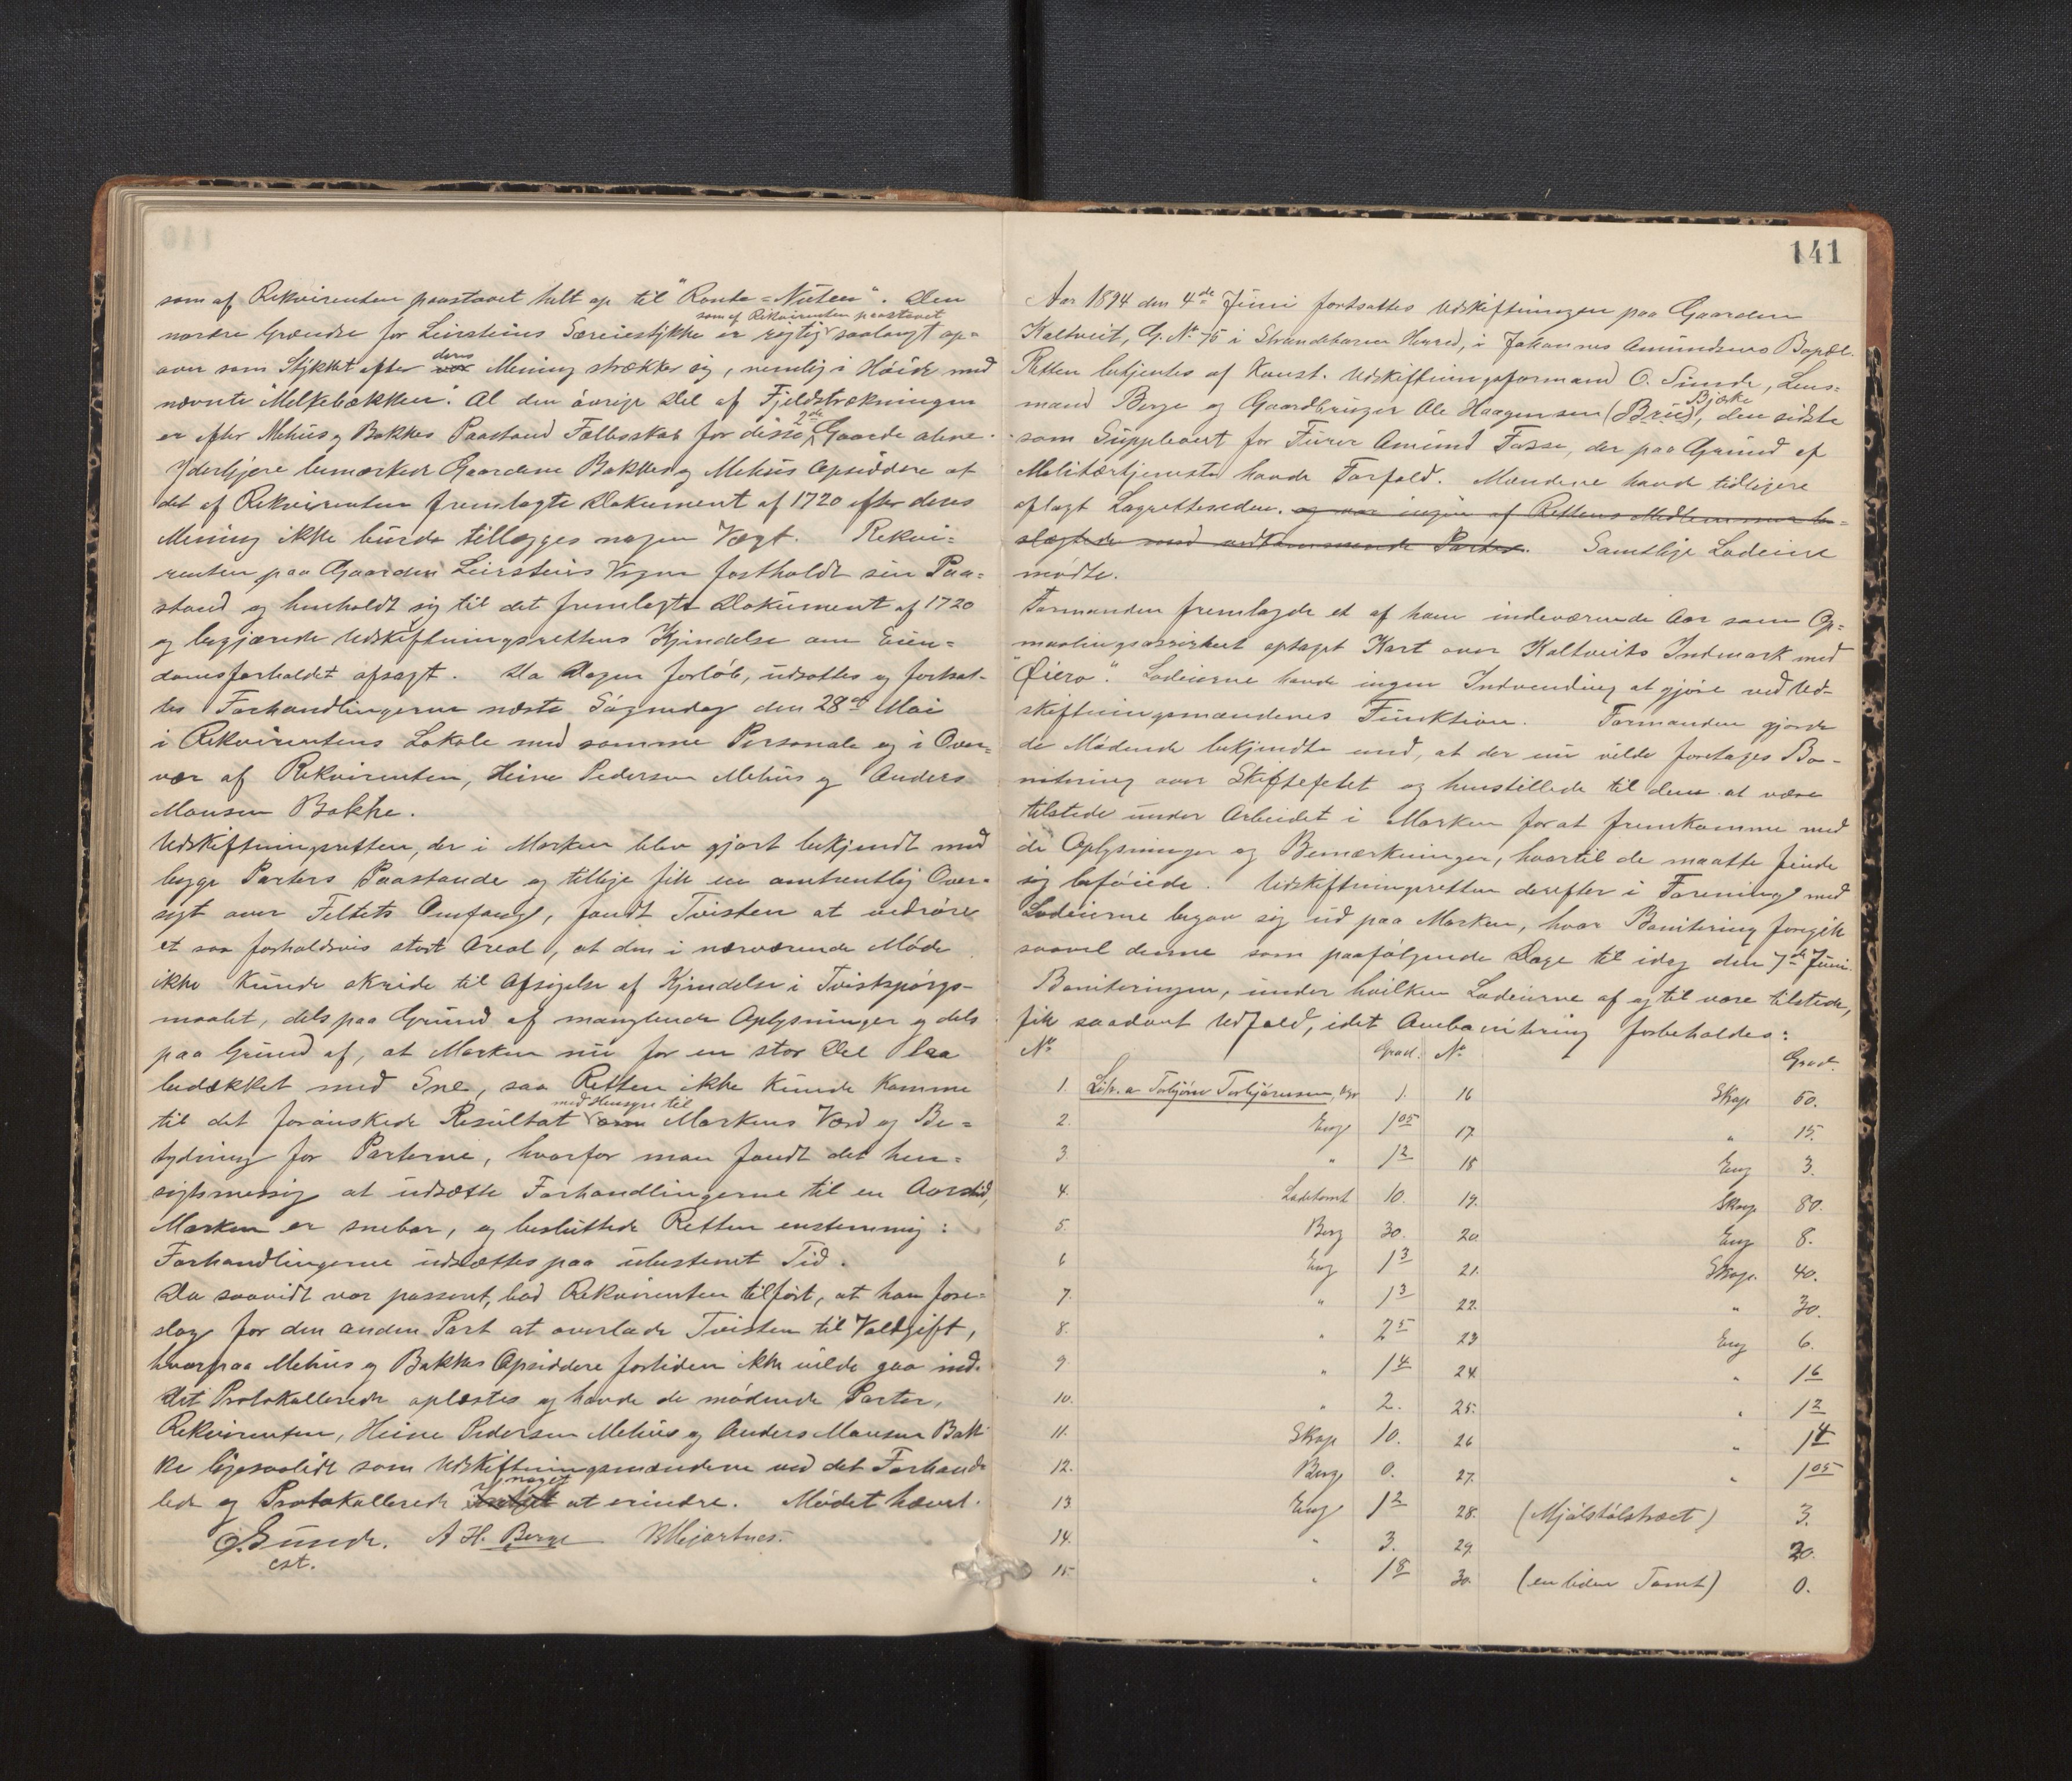 som af Rekvirenten paastaaet helt op til "Ronte=Nuten". Den
som af Rekvirenten paastaaet
nordre Grændse for Leirsteins Særeiestykke er rigtig saalangt op=
over som Stykket efter deres Mening strækker sig, nemlig i Höide med
nævnte Melkebækken. Al den övrige Del af Fjeldstrækningen
er efter Mehus og Bakkes Paastand Fælleskab for disse 2de Gaarde alene.
Yderligere bemærkede Gaardene Bakke og Mehus Opsiddere at
det af Rekvirenten fremlagte Dokument af 1720 efter deres
Mening ikke burde tillægges nogen Vægt. Rekvi=
renten paa Gaarden Leirsteins Vegne fastholdt sin Paa=
stand og henholdt sig til det fremlagte Dokument af 1720
og begjærede Udskiftningsrettens Kjendelse om Eien=
domsforholdet afsagt. Da Dagen forlöb, udsattes og fortsat-
tes Forhandlingerne næste Sögnedag den 28de Mai
i Rekvirentens Lokale med samme Personale og i Over=
vær af Rekvirenten, Heine Pedersen Mehus og Anders
Monsen Bakke.
Udskiftningsretten, der i Marken blev gjort bekjendt med
begge Parters Paastande og tillige fik en omtrentlig Over=
sigt over Feltets Omfang, fandt Tvisten at vedröre
et saa forholdsvis stort Areal, at den i nærværende Möde
ikke kunde skride til Afsigelse af Kjendelse i Tvistspörgs-
maalet, dels paa Grund af manglende Oplysninger og dels
paa Grund af, at Marken nu for en stor Del laa
bedækket med Sne, saa Retten ikke kunde komme
med Hensyn til
til det forönskede Resultat om Markens Værd og Be=
tydning for Parterne, hvorfor man fandt det hen=
sigtsmessig at udsætte Forhandlingerne til en Aarstid,
Marken er snebar, og besluttede Retten enstemmig:
Forhandlingerne udsættes paa ubestemt Tid.
Da saavidt var passeret, bad Rekvirenten tilfört, at han fore=
slog for den anden Part at overlade Tvisten til Voldgift,
hvorpaa Mehus og Bakkes Opsiddere fortiden ikke vilde gaa ind.
Det Protokollerede oplæstes og havde de mödende Parter,
Rekvirenten, Heine Pedersen Mehus og Anders Monsen Bak=
ke ligesaalidt som Udskiftningsmændene ved det Forhand-
noget
lede og Protokollerede at erindre. Mödet hævet.
O. Sunde. A H. Berge
cst.
141
Aar 1894 den 4de Juni fortsattes Udskiftningen paa Gaarden
Kaltveit, G. No 75 i Strandebarm Herred, i Johannes Amundsens Bopæl.
Retten betjentes af Konst. Udskiftningsformand O. Sunde, Lens=
Bjøke
mand Berge og Gaardbruger Ole Haagensen (Brud), den sidste
som Suppleant for Furer Amund Fosse, der paa Grund af
Militærtjeneste havde Forfald. Mændene havde tidligere
aflagt Lagretteseden. og var ingen af Rettens Medlemmer be=
slægtede med vedkommende Parter. Samtlige Lodeiere
mödte.
Formanden fremlagde et af ham indeværende Aar som Op=
maalingsassistent optaget Kart over Kaltveits Indmark med
"Øiero". Lodeierne havde ingen Indvending at gjöre ved Ud-
skiftningsmændenes Funktion. Formanden gjorde
de Mödende bekjendte med, at der nu vilde foretages Bo-
nitering over Skiftefeltet og henstillede til dem at være
tilstede under Arbeidet i Marken for at fremkomme med
de Oplysninger og Bemærkninger, hvortil de maatte finde
sig beföiede. Udskiftningsretten derefter i Forening med
Lodeierne begav sig ud paa Marken, hvor Bonitering foregik
saavel denne som paafölgende Dage til idag den 7de Juni.
Boniteringen, under hvilken Lodeierne af og til vare tilstede,
fik saadant Udfald, idet Ombonitering forbeholdes:
No Grad. No Grad.
1. Litr. a Torbjörn Torbjörnsen, 1. 16 Skog 50.
2. Eng 1 05 17. " 15.
3. " 1 2 18 Eng 3.
4. Ladetomt 10. 19. Skog 80.
5. Berg 30. 20. Eng 8.
6 Eng 1 3 21. Skog. 40.
7. " 1 3 22. " 30.
8. " 2 5 23 Eng 6.
9. " 1 4 24. " 1 6
10. " 2. 25. " 1 2
11. Skog 10. 26 " 1 4
12. Berg 0. 27. " 1 05
13. Eng 1 2 28. (Mjölstölstræet) 3.
14. " 3. 29. 20.
15 " 1 8 30. (en liden Tomt) 0.